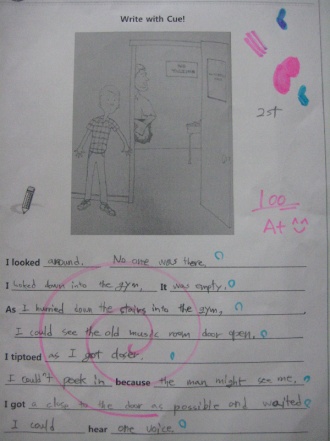 Write with Cue!
NO
TRESPASSING
2st
100
A+
I looked around. No one was there.
I looked down into the gym. It was empty.
As I hurried down the stairs into the gym,
I could see the old music room door open.
I tiptoed as I got closer.
I couldn't peek in because the man might see me.
I got a close to the door as possible and waited
I could hear one voice.